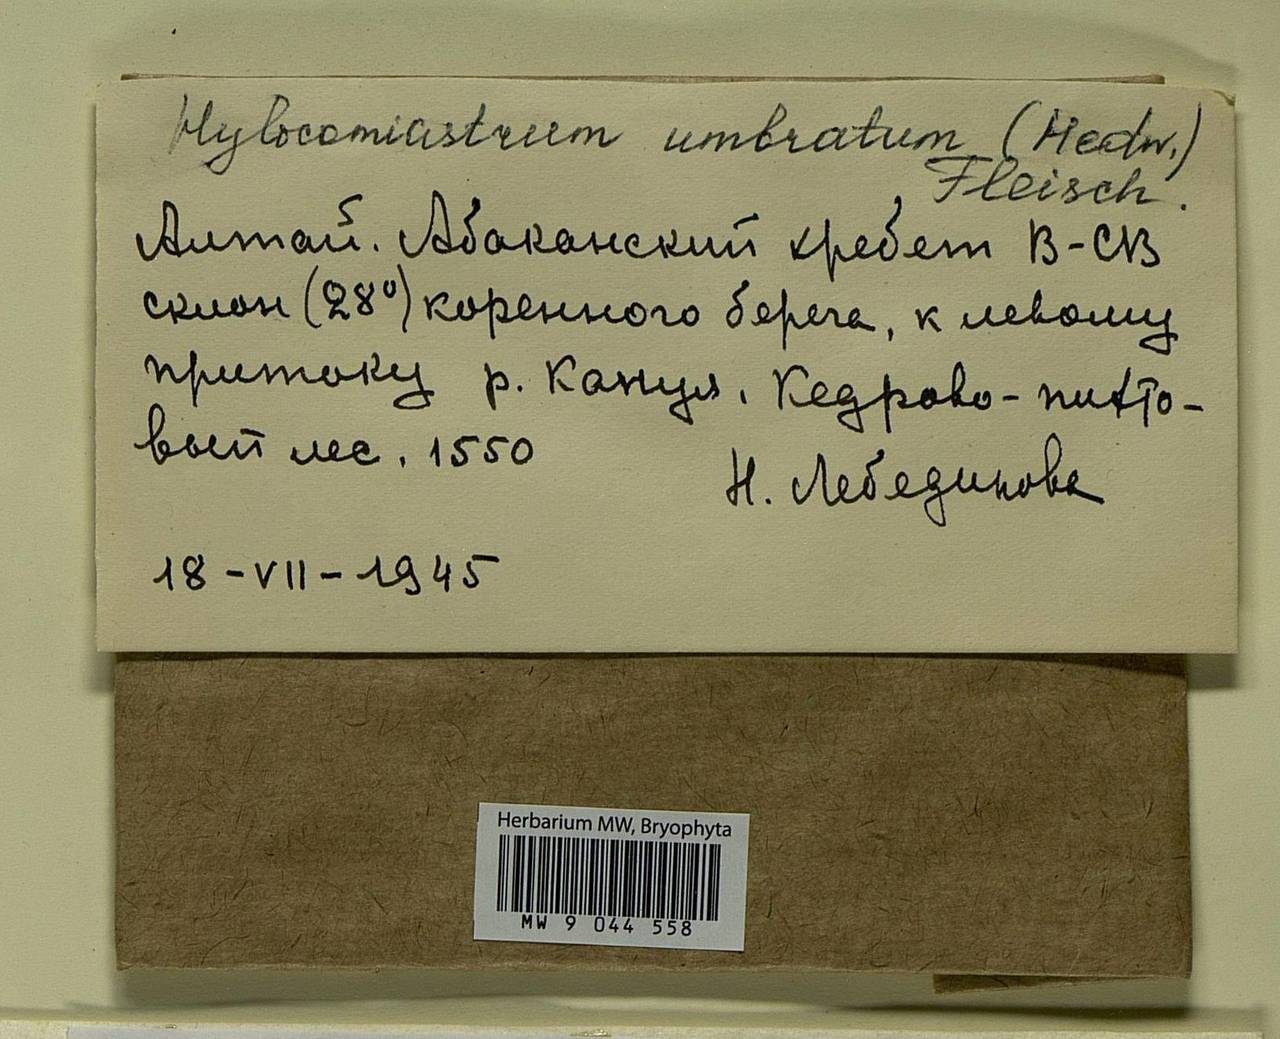 Hylocomiastrum umbratum (Hedw.)
Fleisch.
Алтай. Абаканский хребет В-СВ
склон (28°) коренного берега, к левому
притоку р. Канул. Кедрово-пихто-
вый лес. 1550
Н. Лебединова
18-VII-1945
Herbarium MW, Bryophyta
MW 9 044 558